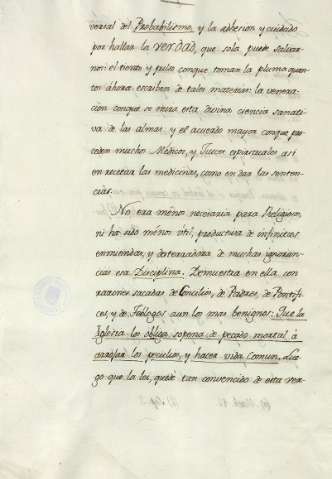 versal del Probabilismo, y la adhesion, y cuidado
por hallar la VERDAD, que sola puede salvar
nos: el tiento, y pulso conque toman la pluma quan
tos ahora escriben de tales materias: la venera-
ción conque se mira esta divina ciencia sanati
va de las almas, y el acuerdo mayor conque pro
ceden muchos Medicos, y Jueces espirituales asi
en recetar las medicinas, como en dar las senten-
cias.
No era menos necesaria para Religiosos,
ni ha sido menos util, productiva de infinitas
enmiendas, y desterradora de muchas ignoran-
cias esa Disciplina. Demuestra en ella, con
razones sacadas de Concilios, de Padres, de Pontifi
ces, y de Teologos aun los mas benignos: Que la
Iglesia los obliga, sopena de pecado mortal à
arrojar los peculios, y hacer vida comun. Lue
go que la leí, quedé tan convencido de esta ver-